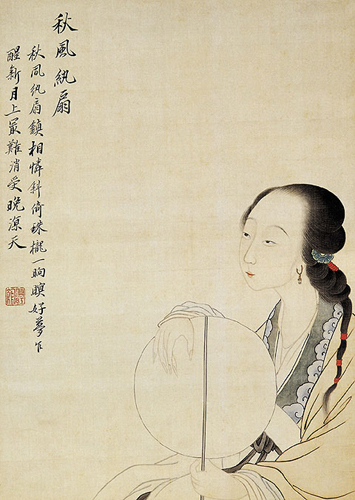 秋風紈扇
秋風紈扇鎮相憐斜倚珠櫳一晌暝好夢乍
醒新月上最難消受晚涼天